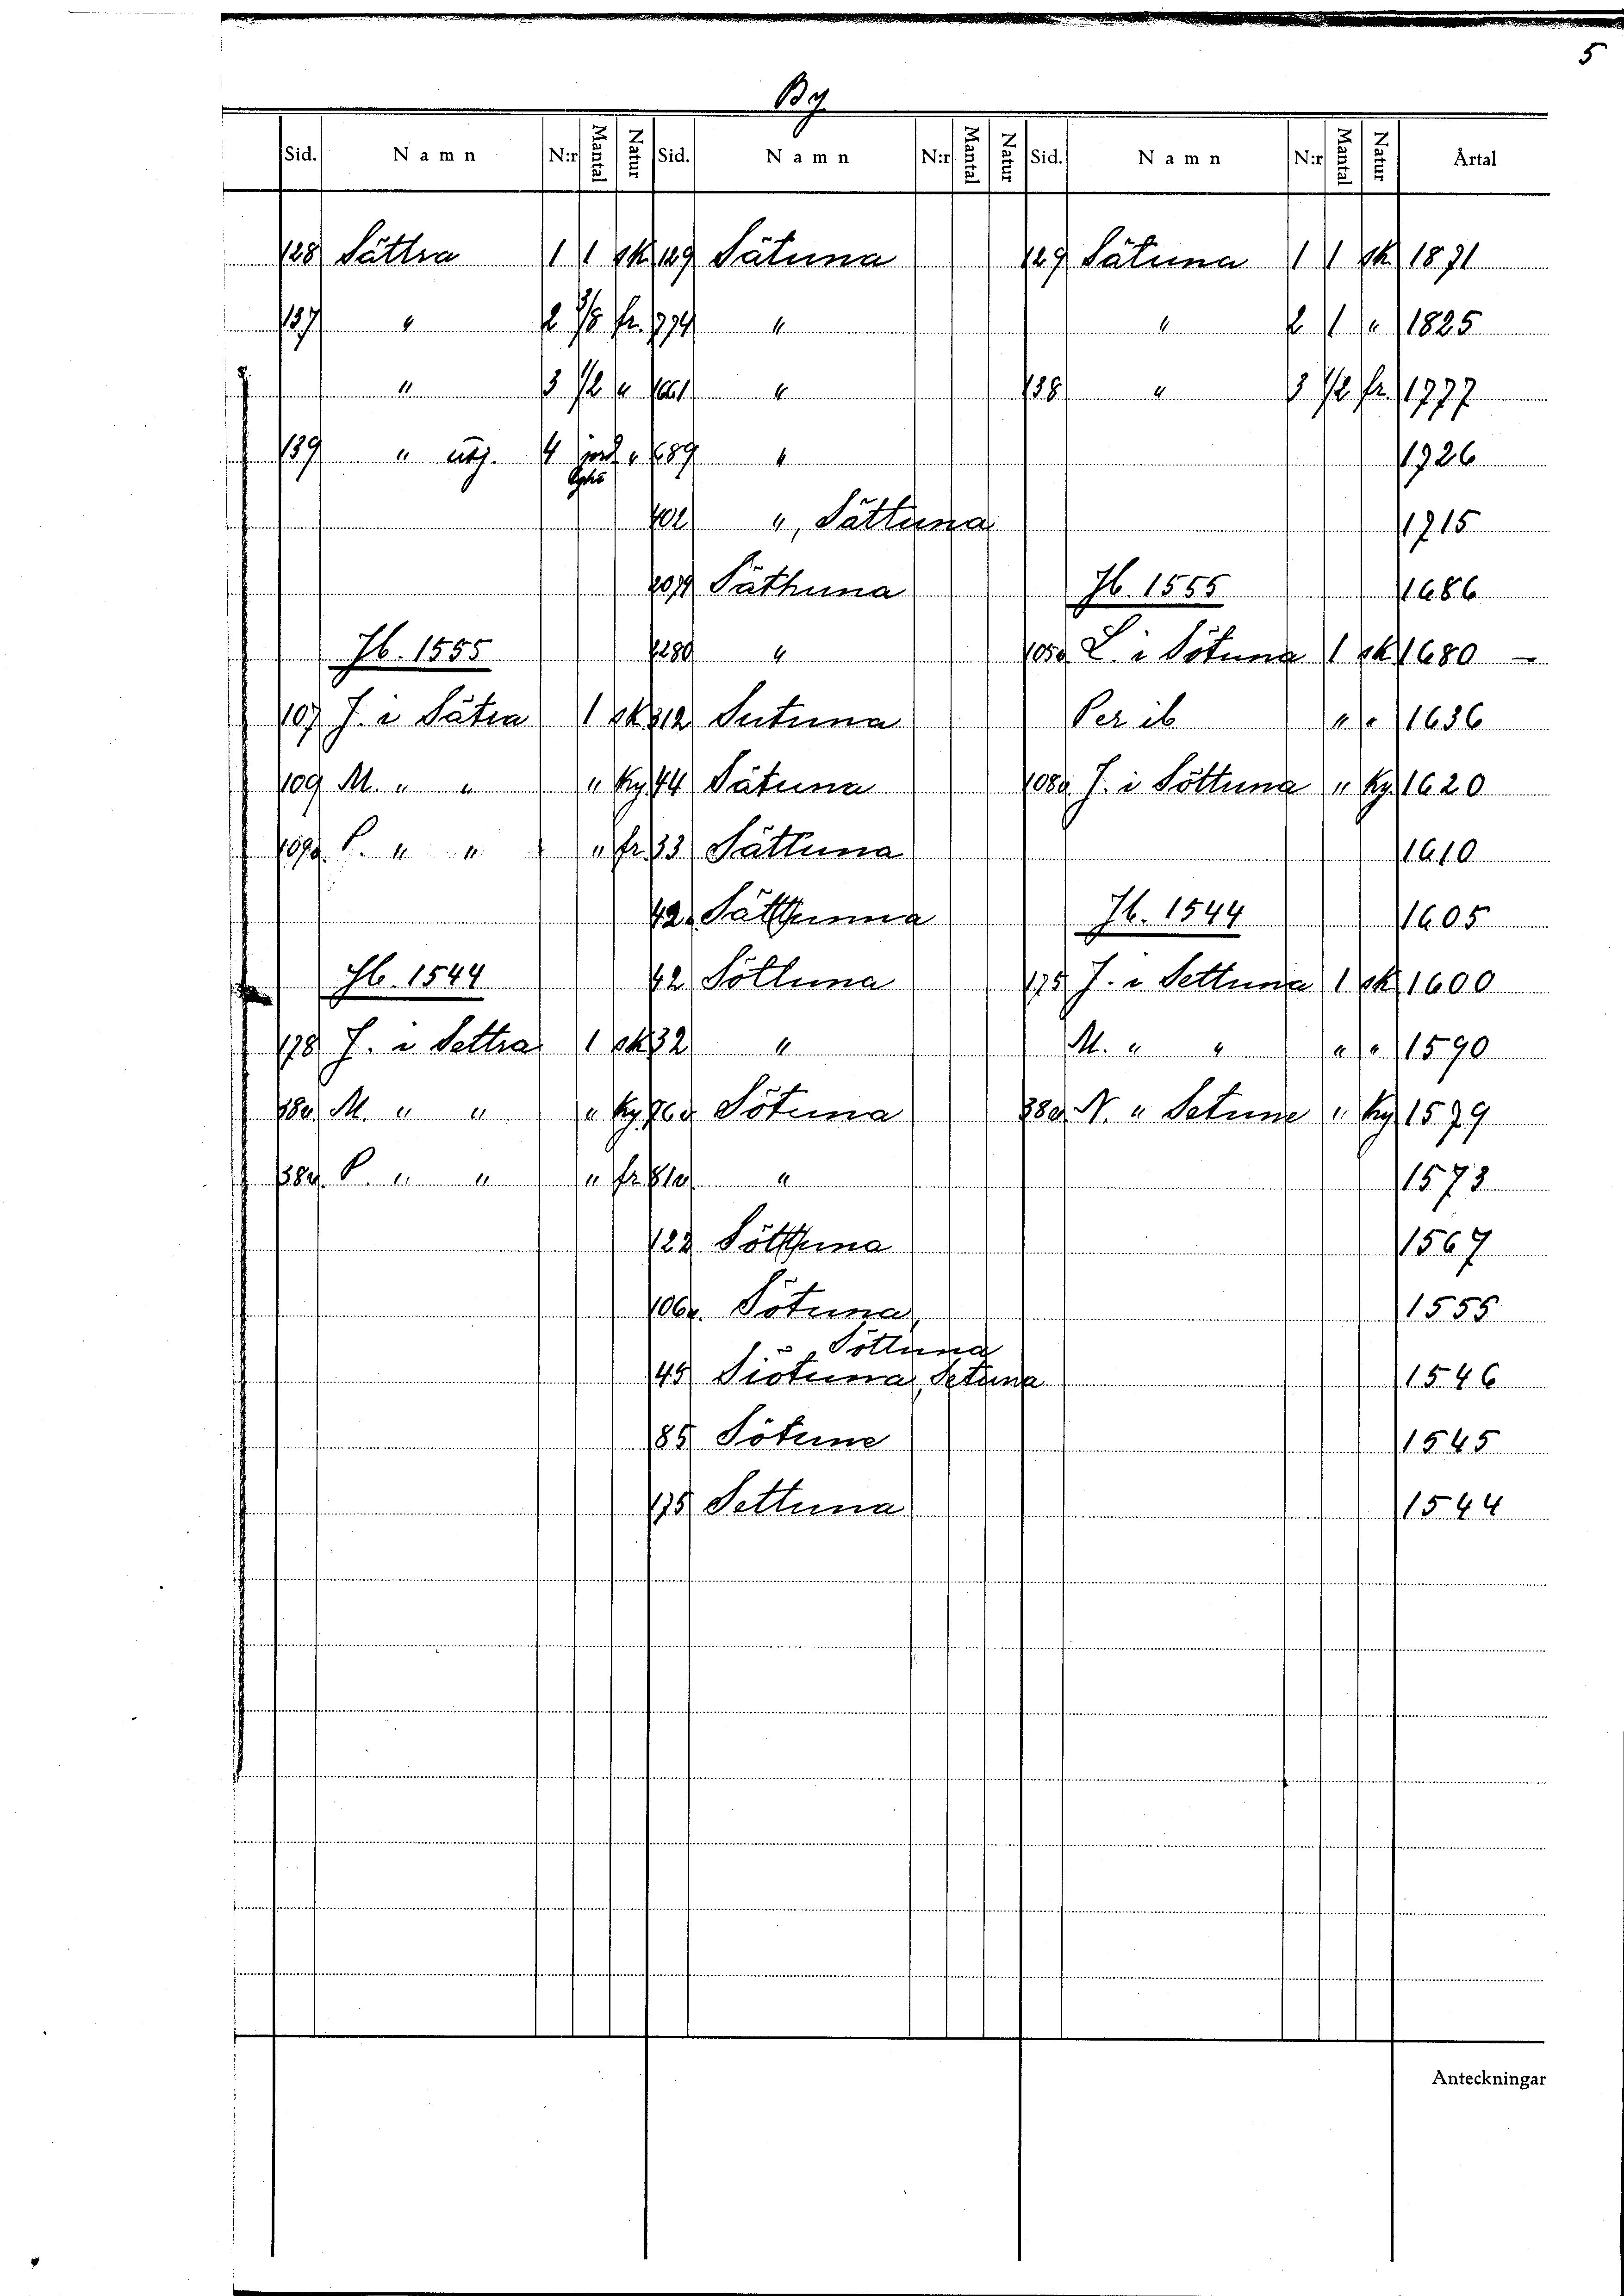 5
By
Sid. Namn N:r Mantal Natur Sid. Namn N:r Mantal Natur Sid. Namn N:r Mantal Natur Årtal
128 Sättra 1 1 sk 129 Sätuna 129 Sätuna 1 1 sk 1871
137 " 2 3/8 fr. 774 " " 2 1 " 1825
" 3 1/2 " 1661 " 138 " 3 1/2 fr. 1777
139 " utj. 4 jord " 689 " 1726
702 ", Sättuna 1715
2074 Säthuna Jb. 1555 1686
Jb. 1555 1280 " 105a L. i Sötuna 1 sk 1680 –
107 J. i Sätra 1 sk 312 Sutuna Per ib " " 1636
109 M. " " " Ky 44 Sätuna 108a J. i Söttuna " Ky. 1620
109a P. " " " fr. 33 Sättuna 1610
42a Sätthunna Jb. 1544 1605
Jb. 1544 42 Söttuna 175 J. i Settuna 1 sk 1600
178 J. i Settra 1 sk 32 " M. " " " " 1590
38a M. " " " Ky. 76a Sötuna 38a N. " Setune " Ky 1579
38a P. " " " fr. 81a " 1573
122 Sötthuna 1567
106a. Sötuna, 1555
Söttuna
45 Siötuna, Setuna 1546
85 Sötune 1545
175 Settuna 1544
Anteckningar